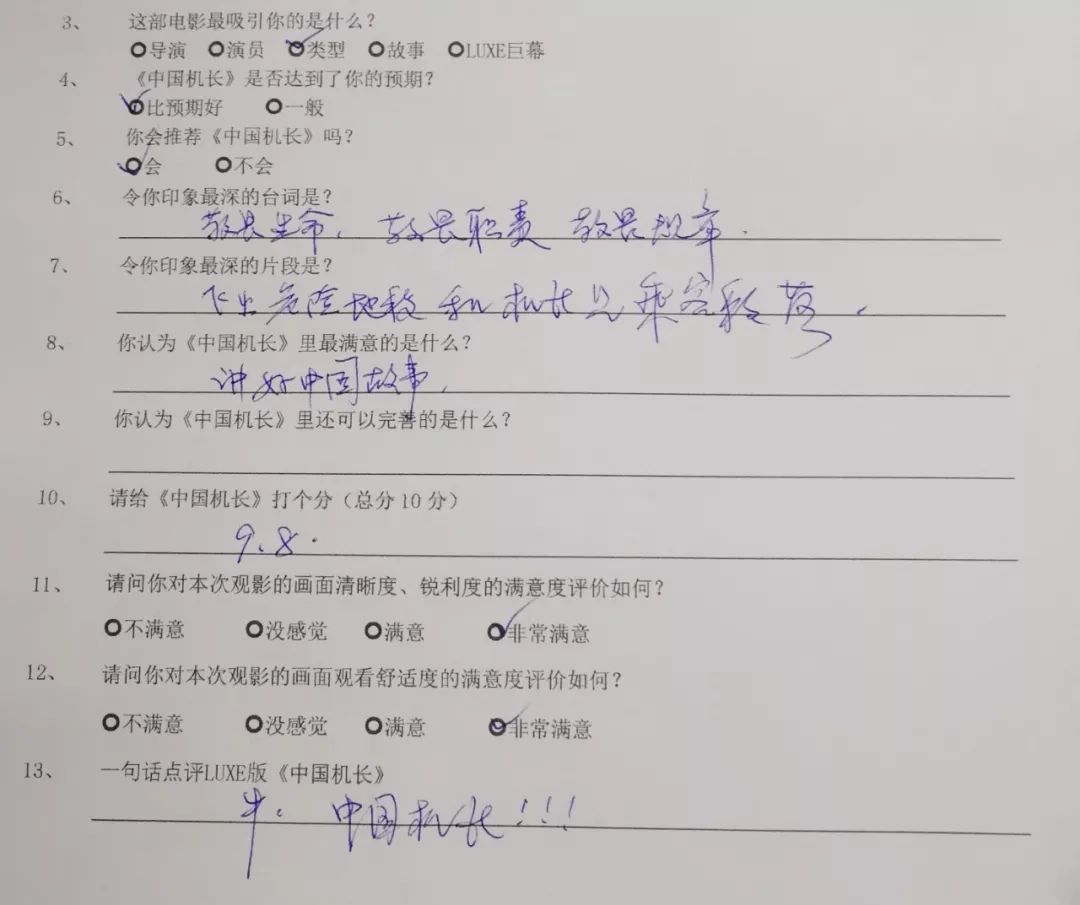 3、 这部电影最吸引你的是什么?
导演 演员 类型 故事 LUXE巨幕
4、 《中国机长》是否达到了你的预期?
比预期好 一般
5、 你会推荐《中国机长》吗?
会 不会
6、 令你印象最深的台词是?
敬畏生命、敬畏职责 敬畏规章.
7、 令你印象最深的片段是?
飞出危险地段和机长见乘客
8、 你认为《中国机长》里最满意的是什么?
讲好中国故事.
9、 你认为《中国机长》里还可以完善的是什么?
10、 请给《中国机长》打个分(总分10分)
9.8.
11、 请问你对本次观影的画面清晰度、锐利度的满意度评价如何?
不满意 没感觉 满意 非常满意
12、 请问你对本次观影的画面观看舒适度的满意度评价如何?
不满意 没感觉 满意 非常满意
13、 一句话点评LUXE版《中国机长》
牛。中国机长!!!